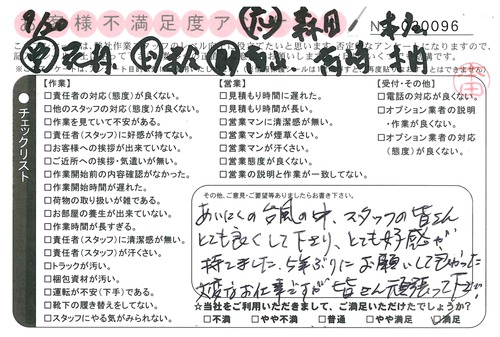 お客様不満足度ア
0096
チェックリスト
【作業】
□責任者の対応(態度)が良くない。
□他のスタッフの対応(態度)が良くない。
□作業を見ていて不安がある。
□責任者(スタッフ)に好感が持てない。
□お客様への挨拶が出来ていない。
□ご近所への挨拶・気遣いが無い。
□作業開始前の内容確認がなかった。
□作業開始時間が遅れた。
□荷物の取り扱いが雑である。
□お部屋の養生が出来ていない。
□作業時間が長すぎる。
□責任者(スタッフ)に清潔感が無い。
□責任者(スタッフ)が汗くさい。
□トラックが汚い。
□梱包資材が汚い。
□運転が不安(下手)である。
□靴下の履き替えをしてない。
□スタッフにやる気がみられない。
【営業】
□見積もり時間に遅れた。
□見積もり時間が長い。
□営業マンに清潔感が無い。
□営業マンが煙草くさい。
□営業マンが汗くさい。
□営業態度が良くない。
□営業の説明と作業が一致してない。
【受付・その他】
□電話の対応が良くない。
□オプション業者の説明
・作業が良くない。
□オプション業者の対応
(態度)が良くない。
その他、ご意見・ご要望等ありましたらお書き下さい。
あいにくの台風の中、スタッフの皆さん
とても良くして下さり、とても好感が
持てました。5年ぶりにお願いして良かった
大変なお仕事ですが皆さん頑張って下さい
☆当社をご利用いただきまして、ご満足いただけたでしょうか?
□不満 □やや不満 □普通 □やや満足 □満足